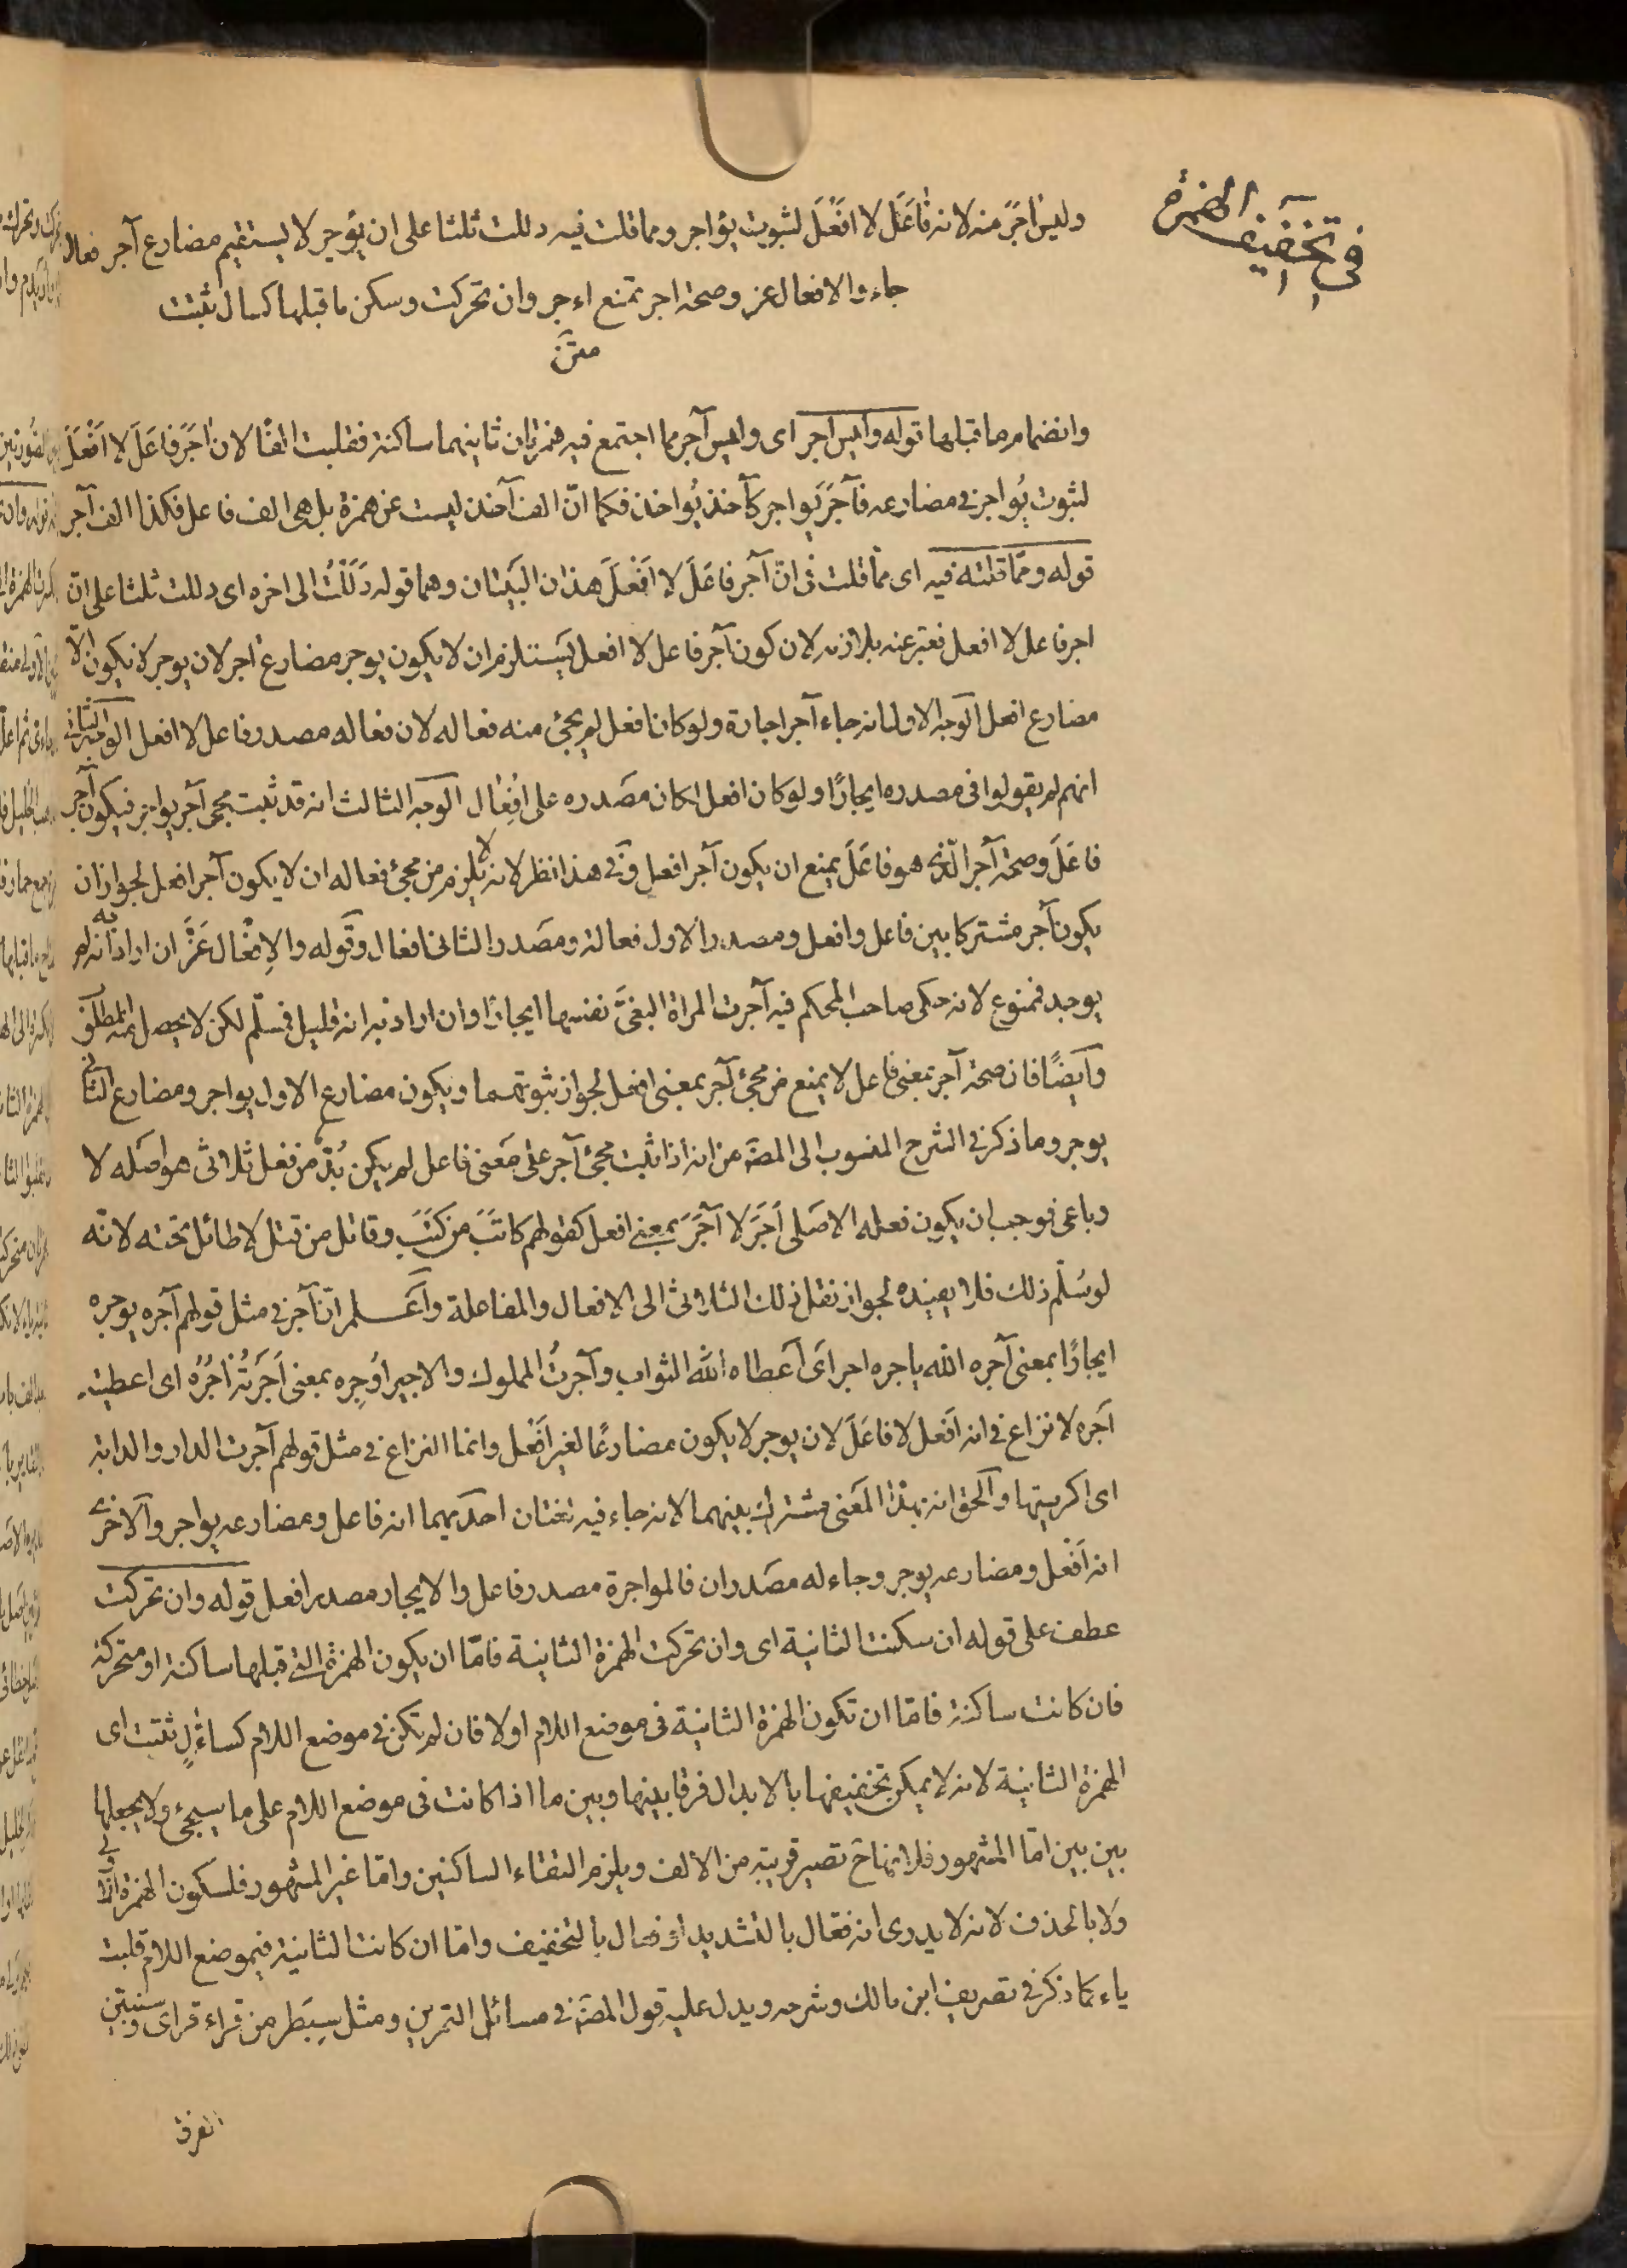 في تخفيف الهمزة
وليس اجر منه لانه فاعَل لا افعَل لثبوت يؤاجر ومما قلت فيه دللت ثلثا على ان يؤجر لا يستقيم مضارع آجر فعال
جاء والافعال عز وصحة اجر تمنع اءجر وان تحركت وسكن ما قبلها كسال تثبت
متن
وانضمام ما قبلها قوله وليس اجر اى وليس آجر مما اجتمع فيه همزتان ثانيهما ساكنة فقلبت الفا لان اجر فاعَلَ لا افعَلَ
لثبوت يُواجر في مضارعه فآجَرَ يَواجر كآخذ يُواخذ فكما انّ الف آخذ ليست عن همزة بل هى الف فاعل فكذا الف آجر
قوله وممّا قلته فيه اى ممّا قلت فى انّ آجر فاعَلَ لا افعَلَ هذان البَيتان وهما قوله دَلَلْتُ الى اخره اى دللت ثلثا على انّ
اجر فاعل لا افعل فعبّر عنه بلازمه لان كون آجر فاعل لا افعل يَستلزم ان لا يكون يوجر مضارع اجر لان يوجر لا يكون الّا
مضارع افعل الوجه الاول انه جاء آجر اجارة ولو كان افعل لم يجئ منه فعاله لان فعاله مصدر فاعل لا افعل الوجه الثانى
انهم لم يقولوا فى مصدره ايجارًا ولو كان افعل لكان مصَدره على افعال الوجه الثالث انه قد ثبت مجئ آجر يواجر فيكون آجر
فاعَلَ وصحة آجر الّذى هو فاعَلَ يمنع ان يكون آجر افعل وفى هذا نظر لانه لا يلزم من مجئ فعاله ان لا يكون آجر افعل لجواز ان
يكون آجر مشتركا بين فاعل وافعل ومصدر الاول فعالة ومصَدر الثانى افعال وقوله والاِفعال عَزّ ان اراد به انه لم
يوجد فممنوع لانه حكى صاحب المحكم فيه آجرت المراة البغىّ نفسها ايجارًا وان اراد به انه قليل فمسلّم لكن لا يحصل منه المطلوب
وايضًا فان صحة آجر بمعنى فاعل لا يمنع من مجئ آجر بمعنى افعل لجواز ثبوتهما ويكون مضارع الاول يواجر ومضارع الثانى
يوجر وما ذكر في الشرح المنسوب الى المصّ من انه اذا ثبت مجئ آجر على مَعنى فاعل لم يكن بُدّ من فعل ثلاثى هو اصَله لا
رباعى فوجب ان يكون فعله الاصَلى اَجَرَ لا آجَرَ بمعنى افعل كقولهم كاتَبَ من كتَبَ وقاتل من قتل لا طائل تحته لانّه
لو سُلّم ذلك فلا يفيده لجواز نقل ذلك الثلاثى الى الافعال والمفاعلة واعلم انّ آجر في مثل قولهم آجره يوجره
ايجارًا بمعنى آجره الله ياجره اجرا اى اعطاه الله الثواب وآجرتُ المملوك والاجير اُوجِره بمعنى اَجَرتُه اَجُرُه اى اعطيته
آجره لا نزاع فى انه اَفعل لا فاعَلَ لان يوجر لا يكون مضارعًا لغير اَفعل وانما النزاع في مثل قولهم آجرت الدار والدابة
اى اكريتها والحق انه بهذا المَعنى مشترك بينهما لانه جاء فيه لغتان احديهما انه فاعل ومضارعه يواجر والاخرى
انه اَفعل ومضارعه يوجر وجاء له مصَدران فالمواجرة مصدر فاعل والايجار مصدر افعل قوله وان تحركت
عطف على قوله ان سكنت الثانية اى وان تحركت الهمزة الثانية فامّا ان يكون الهمزة التى قبلها ساكنة او متحركة
فان كانت ساكنة فامّا ان تكون الهمزة الثانية فى موضع اللام اولا فان لم تكن في موضع اللام كساءّلٍ ثبتت اى
الهمزة الثانية لانه لا يمكن تخفيفها بالابدال فرقا بينها وبين ما اذا كانت فى موضع اللام على ما سيجئ ولا بجعلها
بين بين امّا المشهور فلانها ح تصير قريبة من الألف ويلزم التقاء الساكنين وامّا غير المشهور فلسكون الهمزة الاولى
ولا بالحذف لانه لا يدرى انه فعّال بالتشديد او فعال بالتخفيف وامّا ان كانت الثانية في موضع اللام قلبت
ياء كما ذكر في تصريف ابن مالك وشرحه ويدل عليه قول المصّ في مسائل التمرين ومثل سِبَطر من قراء قراى وسنبيّن
الفرق